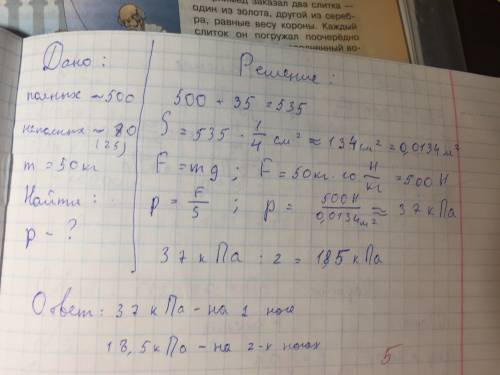 медд заказал два слитка —
один из золота, другой из сереб-
ра, равные весу короны. Каждый
слиток он погружал поочерёдно
Дано:
полных ~ 500
неполных ~ 80
(25)
m = 50 кг
Найти:
p - ?
Решение:
500 + 35 = 535
S = 535 · 1/4 см² ≈ 134 см² = 0,0134 м²
F = mg ; F = 50кг · 10 Н/кг = 500 Н
p = F/S ; p = 500Н/0,0134м² ≈ 37 кПа
37 кПа : 2 = 18,5 кПа
Ответ: 37 кПа - на 1 ноге
18,5 кПа - на 2-х ногах
5